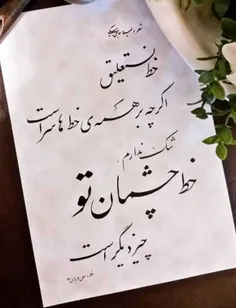 خط
نستعلیق
اگرچه بر همه‌ی خط‌ها سر است
شک ندارم
خط چشمان تو
چیز دیگر است